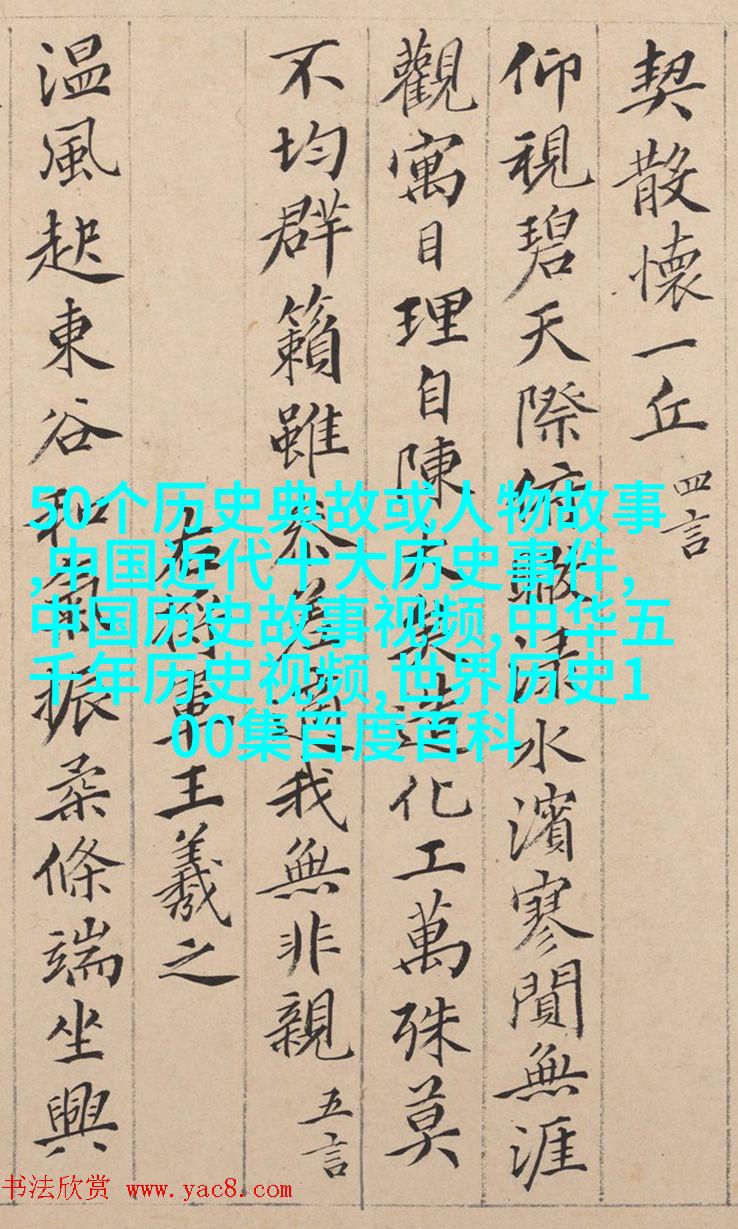 契散懷一丘 四言
仰視碧天際俯瞰淥水濱寥閴無涯
觀寓目理自陳大矣造化工萬殊莫
不均群籟雖參差適我無非親 五言
右將軍王羲之
温風起東谷和氣振柔條端坐興
50个历史典故或人物故事
,中国近代十大历史事件,
中国历史故事视频,中华五
千年历史视频,世界历史1
00集百度百科
书法欣赏 www.yac8.com